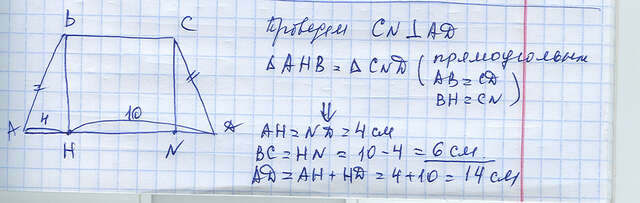 B C
A 4 10 D
H N
Проведем CN⊥AD
△AHB = △CND (прямоугольн
AB = CD
BH = CN)
⇓
AH = ND = 4 см
BC = HN = 10 - 4 = 6 см.
AD = AH + HD = 4 + 10 = 14 см